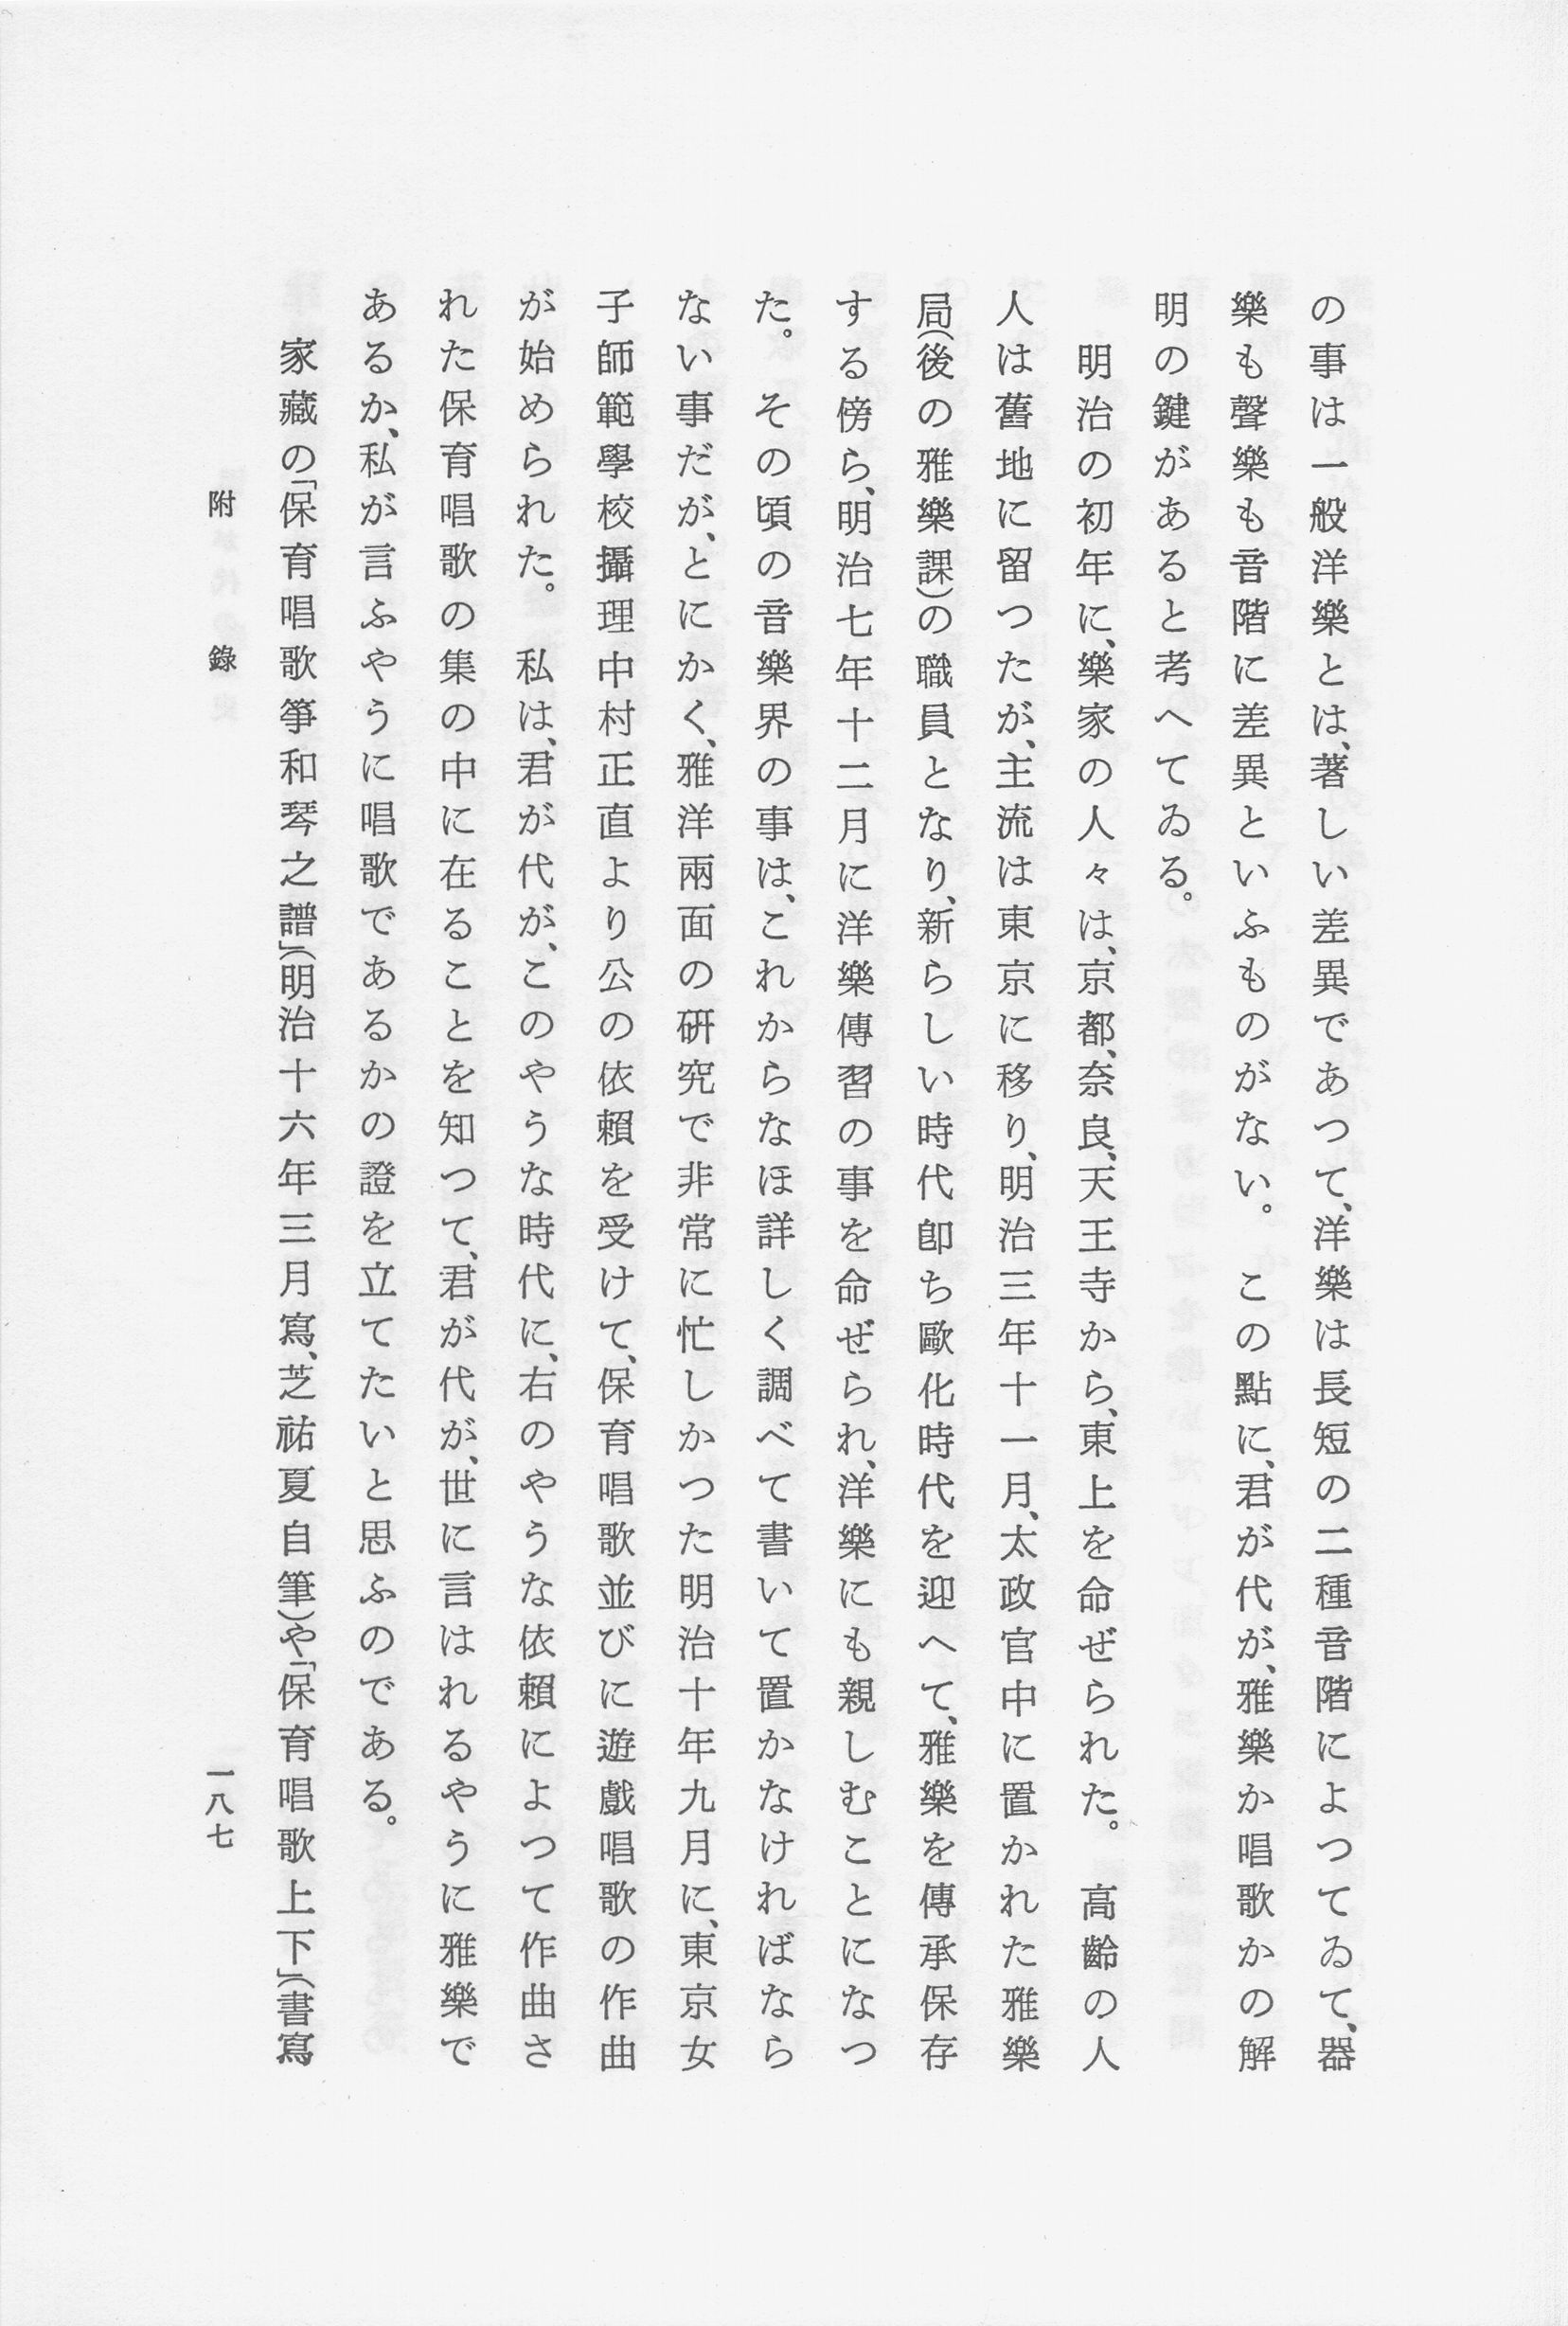 の事は一般洋樂とは、著しい差異であつて、洋樂は長短の二種音階によつてゐて、器
樂も聲樂も音階に差異といふものがない。　この點に、君が代が、雅樂か唱歌かの解
明の鍵があると考へてゐる。
　明治の初年に、樂家の人々は、京都、奈良、天王寺から、東上を命ぜられた。　高齡の人
人は舊地に留つたが、主流は東京に移り、明治三年十一月、太政官中に置かれた雅樂
局(後の雅樂課)の職員となり、新らしい時代卽ち歐化時代を迎へて、雅樂を傳承保存
する傍ら、明治七年十二月に洋樂傳習の事を命ぜられ、洋樂にも親しむことになつ
た。　その頃の音樂界の事は、これからなほ詳しく調べて書いて置かなければなら
ない事だが、とにかく、雅洋兩面の硏究で非常に忙しかつた明治十年九月に、東京女
子師範學校攝理中村正直より公の依賴を受けて、保育唱歌並びに遊戲唱歌の作曲
が始められた。　私は、君が代が、このやうな時代に、右のやうな依賴によつて作曲さ
れた保育唱歌の集の中に在ることを知つて、君が代が、世に言はれるやうに雅樂で
あるか、私が言ふやうに唱歌であるかの證を立てたいと思ふのである。
　家藏の「保育唱歌箏和琴之譜」(明治十六年三月寫、芝祐夏自筆)や「保育唱歌上下」(書寫
附錄
一八七